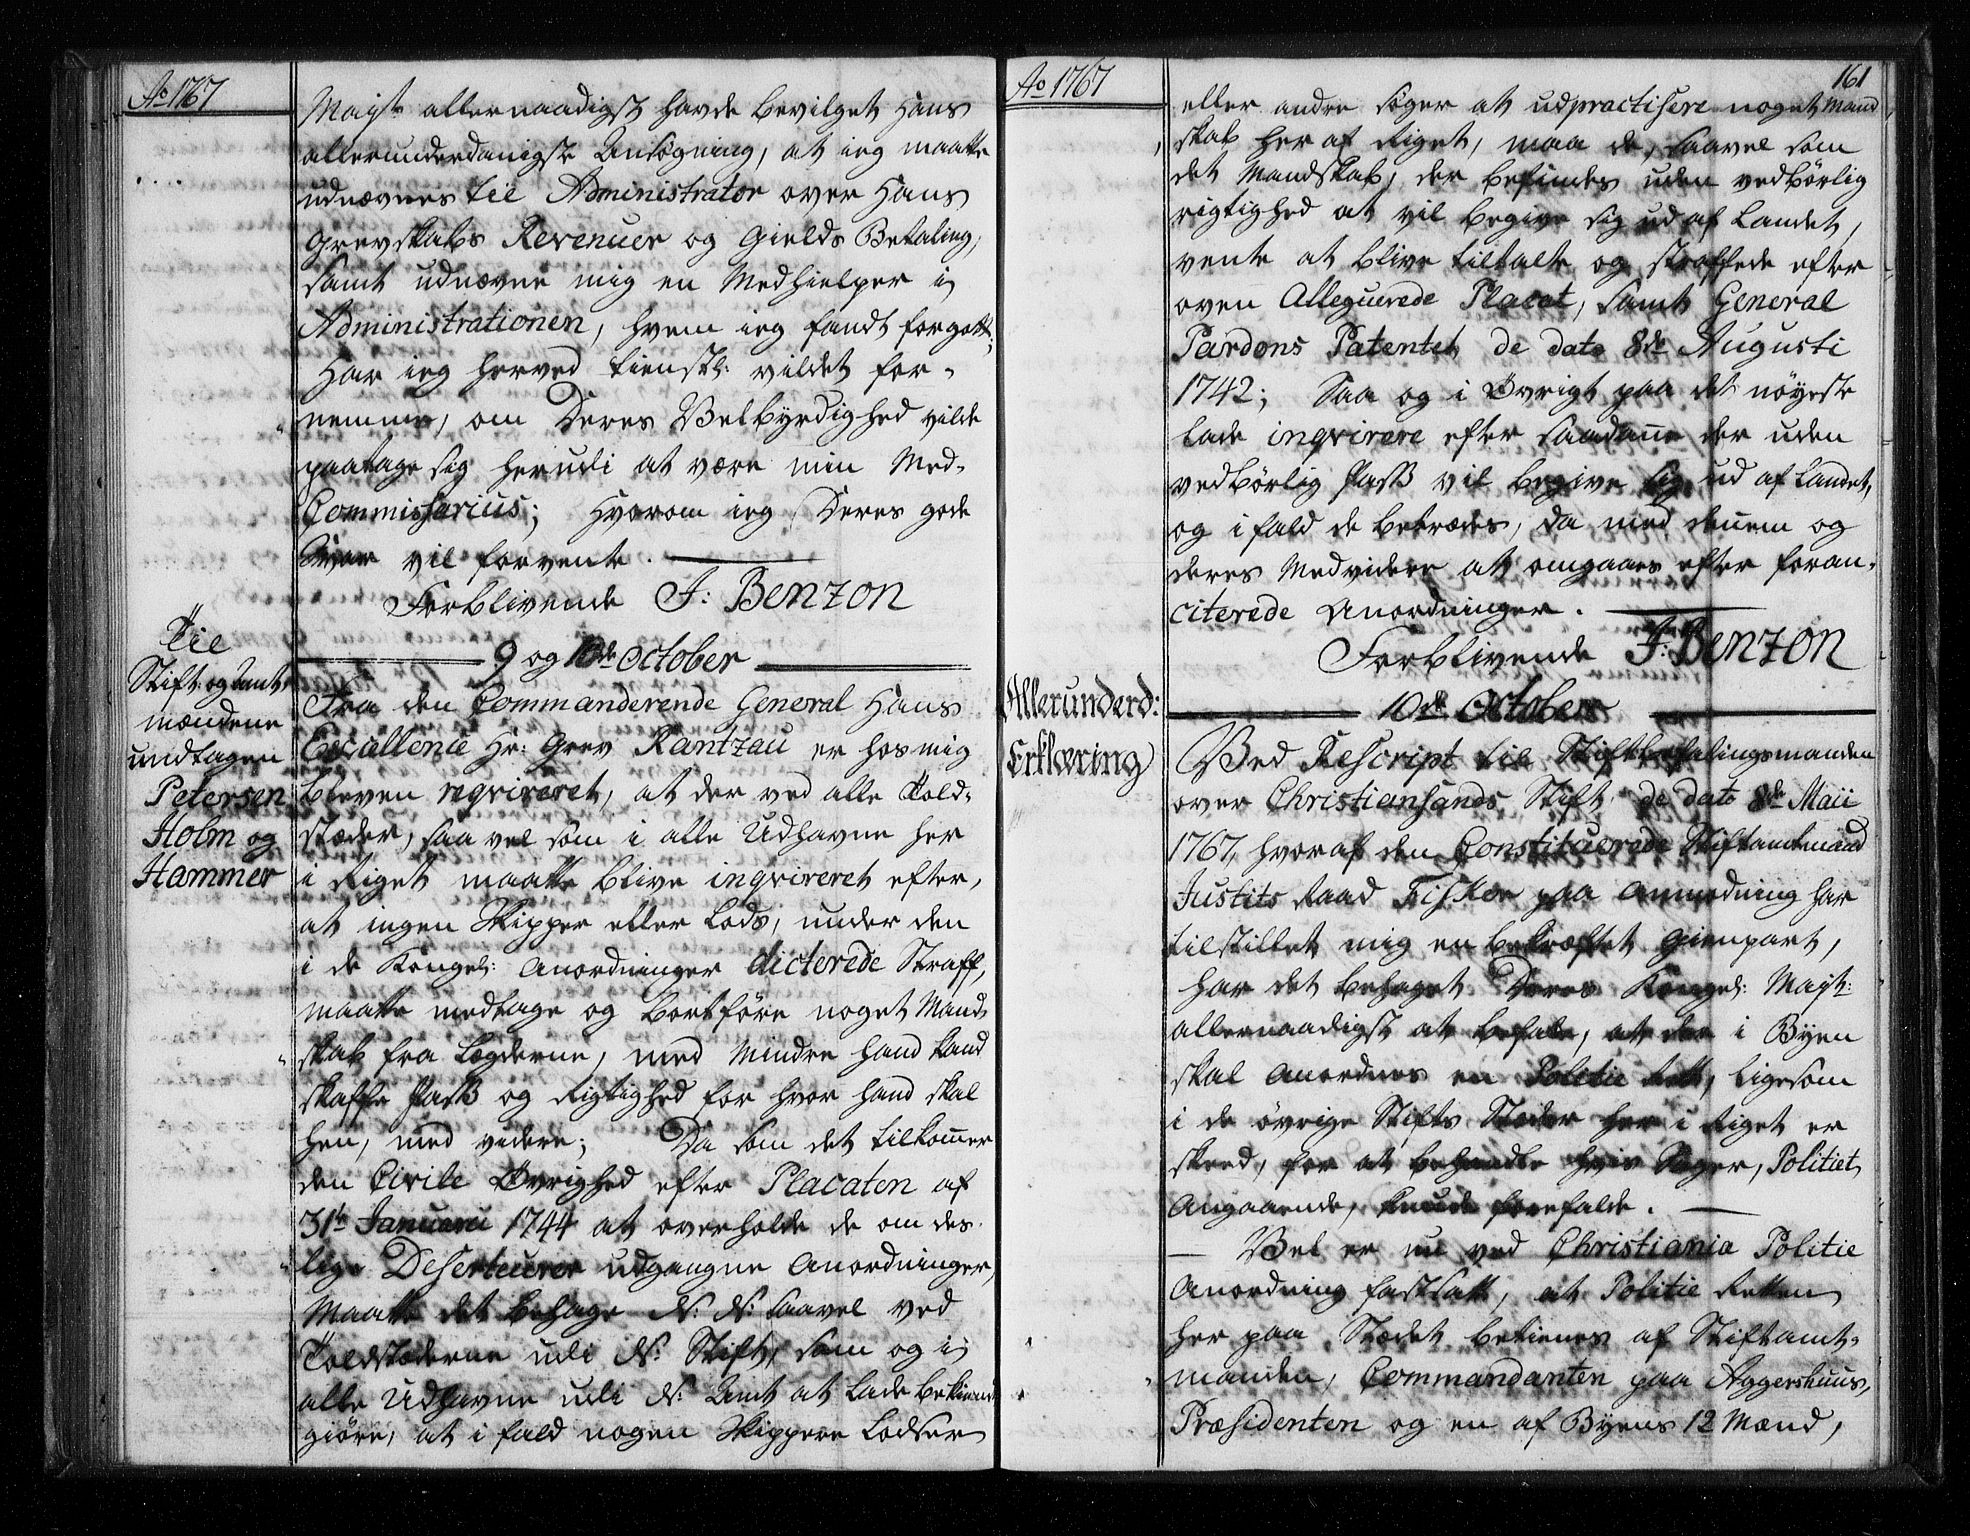 Ao 1767
Mayst. allernaadigst havde bevilget Hans
allerunderdanigste Ansøgning, at ieg maatte
udnævnes til Administrator over Hans
Grevskabs Revenuer og Gields Betaling,
samt udnævne mig en Medhielper i
Administrationen, hvem ieg fandt forgott;
Har ieg herved tienstl: vildet for-
nemme, om Deres Velbyrdighed vilde
paatage sig herudi at være min Med-
Commissarius; Hvorom ieg Deres gode
Svar vil forvente.
Forblivende J: Benzon
Til
Stift og Amt
mændene
undtagen
Petersen
Holm og
Hammer
9 og 10de October
Fra den Commanderende General Hans
Excellence Hr: Grev Rantzau er hos mig
bleven reqvireret, at der ved alle Told-
stæder, saa vel som i alle Udhavne her
i Riget maatte blive inqvireret efter,
at ingen Skipper eller Lods, under den
i de Kongel: Anordninger dicterede Straff,
maatte medtage og bortføre noget Mand-
skab fra Lægderne, med mindre hand kand
skaffe Pass og Rigtighed for hvor hand skal
hen, med videre; Da som det tilkommer
den Civile Øvrighed efter Placaten af
31te Januarii 1744 at overholde de om des-
lige Deserteurer udgangne Anordninger,
Maatte det behage N: N: saavel ved
Toldstæderne udi N: Stift, som og i
alle Udhavne udi N: Amt at lade bekiendt
giøre, at i fald nogen Skippere Lodser
Ao 1767
161
eller andre søger at udpractisere noget Mand
skab her af Riget, maa de, saavel som
det Mandskab, der befindes uden vedbørlig
rigtighed at vil begive sig ud af Landet,
vente at blive tiltalte og straffede efter
oven Alleguerede Placat, samt General
Pardons Patentet de dato 8de Augusti
1742; Saa og i Øvrigt paa det nøyeste
lade inqvirere efter saadanne der uden
vedbørlig Pass vil begive sig ud af Landet,
og i fald de betrædes, da med dennem og
deres Medvidere at omgaaes efter foran-
citerede Anordninger.
Forblivende J: Benzon
Allerunderd:
Erklæring
10de October
Ved Rescript til Stiftbefalingsmanden
over Christiansands Stift de dato 8de Maii
1767, hvoraf den Constituerede Stiftamtmand
Justits Raad Fisker paa Anmodning har
tilstillet mig en bekræftet Gienpart,
har det behaget Deres Kongel: Mayst:
allernaadigst at befale, at der i Byen
skal Anordnes en Politie Rett, ligesom
i de øvrige Stifts Stæder her i Riget er
skeed, for at behandle hvis Sager, Politiet
Angaaende, kunde forefalde.
Vel er nu ved Christiania Politie
Anordning fastsatt, at Politie Retten
her paa Stædet betienes af Stiftamt-
manden, Commandanten paa Aggershuus,
Præsidenten og en af Byens 12 Mænd,